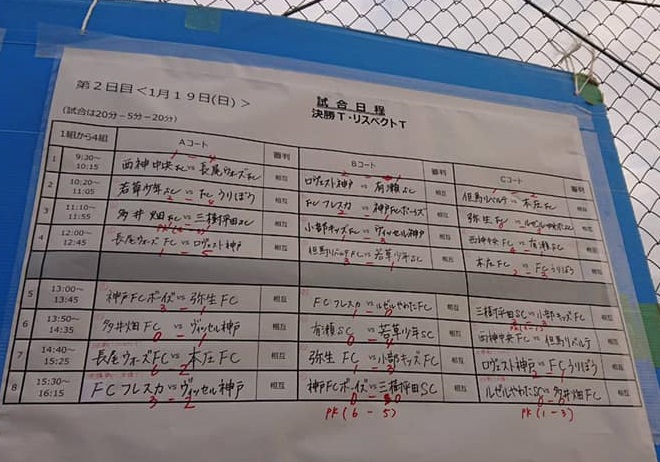 第2日目<1月19日(日)>
試合日程
決勝T・リスペクトT
(試合は20分-5分-20分)
1組から4組 Aコート 審判 Bコート 審判 Cコート 審判
1 9:30~10:15 西神中央FC vs 長尾ウォーズFC 相互 ロヴェスト神戸 vs 有瀬SC 相互 但馬リベルテ vs 本庄FC 相互
2 10:20~11:05 若草少年SC vs FCうりぼう 相互 FCフレスカ vs 神戸FCボーイズ 相互 弥生FC vs 相互
3 11:10~11:55 多井畑FC vs 三樹平田SC 相互 小部キッズFC vs ヴィッセル神戸 相互 西神中央FC vs 有瀬FC 相互
4 12:00~12:45 長尾ウォーズFC vs ロヴェスト神戸 相互 但馬リベルテFC vs 若草少年SC 相互 本庄FC vs FCうりぼう 相互
1 - 5
5 13:00~13:45 神戸FCボーイズ vs 弥生FC 相互 FCフレスカ vs ルゼルやわたFC 相互 三樹平田SC vs 小部キッズFC 相互
6 13:50~14:35 多井畑FC vs ヴィッセル神戸 相互 有瀬SC vs 若草少年SC 相互 西神中央FC vs 但馬リベルテ 相互
0 - 1
7 14:40~15:25 長尾ウォーズFC vs 本庄FC 相互 弥生FC vs 小部キッズFC 相互 ロヴェスト神戸 vs FCうりぼう 相互
6 - 2 1 - 3
8 15:30~16:15 FCフレスカ vs ヴィッセル神戸 相互 神戸FCボーイズ vs 三樹平田SC 相互 ルゼルやわたSC vs 多井畑FC 相互
3 - 2 0 - 0
PK(6 - 5) PK(1-3)